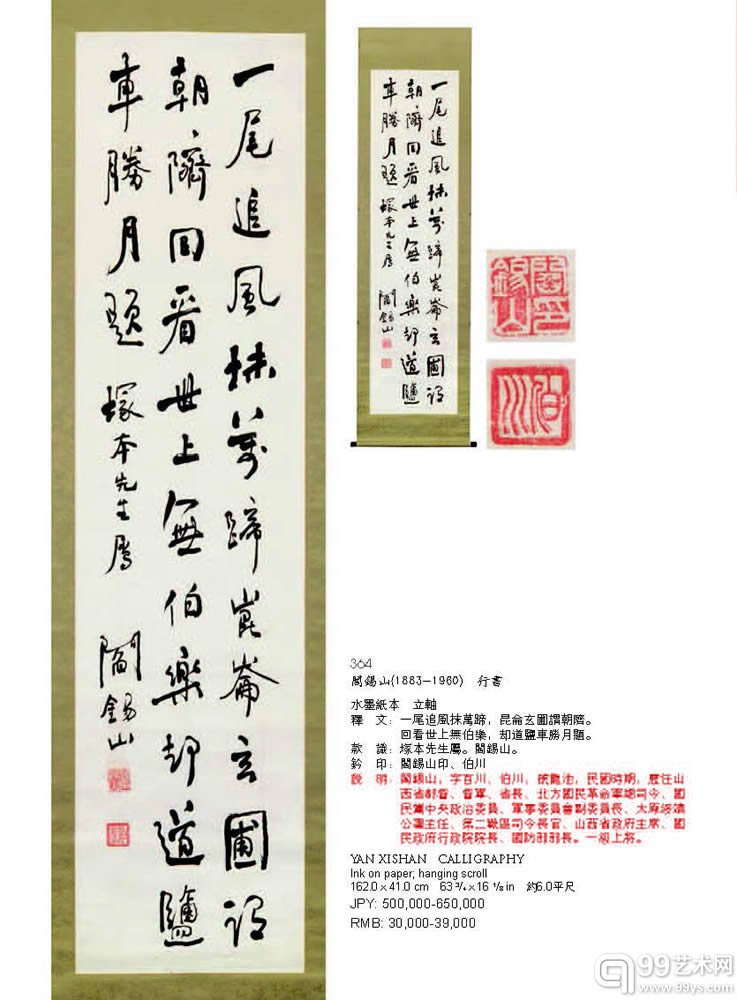 一尾追風抹萬蹄崑崙玄圃謂
朝隮回看世上無伯樂却道鹽
車勝月題 塚本先生屬 閻錫山
一尾追風抹萬蹄崑崙玄圃謂
朝隮回看世上無伯樂却道鹽
車勝月題 塚本先生屬 閻錫山
閻錫山印
伯川
364
閻錫山(1883—1960) 行書
水墨紙本 立軸
釋 文：一尾追風抹萬蹄，昆侖玄圃謂朝隮。
回看世上無伯樂，却道鹽車勝月題。
款 識：塚本先生屬。閻錫山。
鈐 印：閻錫山印、伯川
說 明：閻錫山，字百川、伯川，號龍池，民國時期，歷任山
西省都督、督軍、省長、北方國民革命軍總司令、國
民黨中央政治委員、軍事委員會副委員長、太原綏靖
公署主任、第二戰區司令長官、山西省政府主席、國
民政府行政院院長、國防部部長。一級上將。
YAN XISHAN CALLIGRAPHY
Ink on paper; hanging scroll
162.0×41.0 cm 63 3/4×16 1/8 in 約6.0平尺
JPY: 500,000-650,000
RMB: 30,000-39,000
99艺术网
www.99ys.com